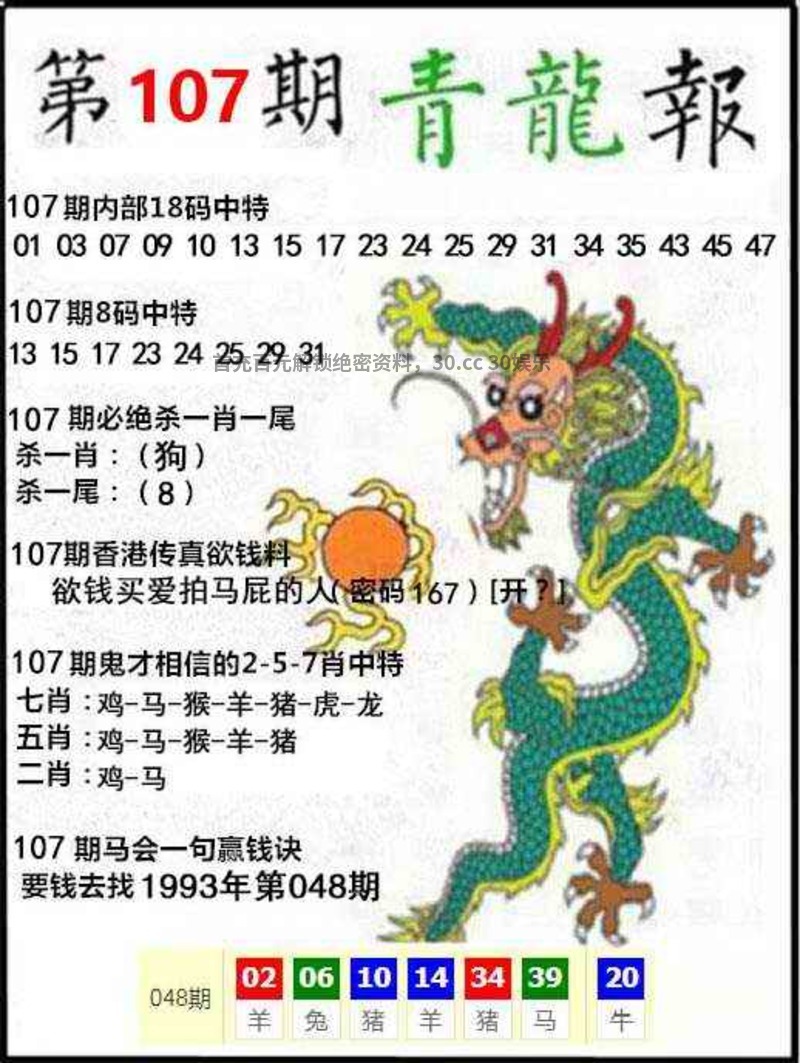 第107期青龍報
107期内部18码中特
01 03 07 09 10 13 15 17 23 24 25 29 31 34 35 43 45 47
107期8码中特
13 15 17 23 24 25 29 31
首充百元解锁绝密资料，30.cc 30娱乐
107 期必绝杀一肖一尾
杀一肖：（狗）
杀一尾：（8）
107期香港传真欲钱料
欲钱买爱拍马屁的人( 密码 167 ) [开？]
107期鬼才相信的2-5-7肖中特
七肖：鸡-马-猴-羊-猪-虎-龙
五肖：鸡-马-猴-羊-猪
二肖：鸡-马
107 期马会一句赢钱诀
要钱去找1993年第048期
048期 02 06 10 14 34 39 20
羊 兔 猪 羊 猪 马 牛